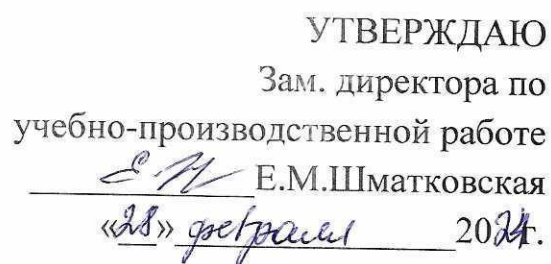 УТВЕРЖДАЮ
Зам. директора по
учебно-производственной работе
Е.М.Шматковская
«28» февраля 2024г.